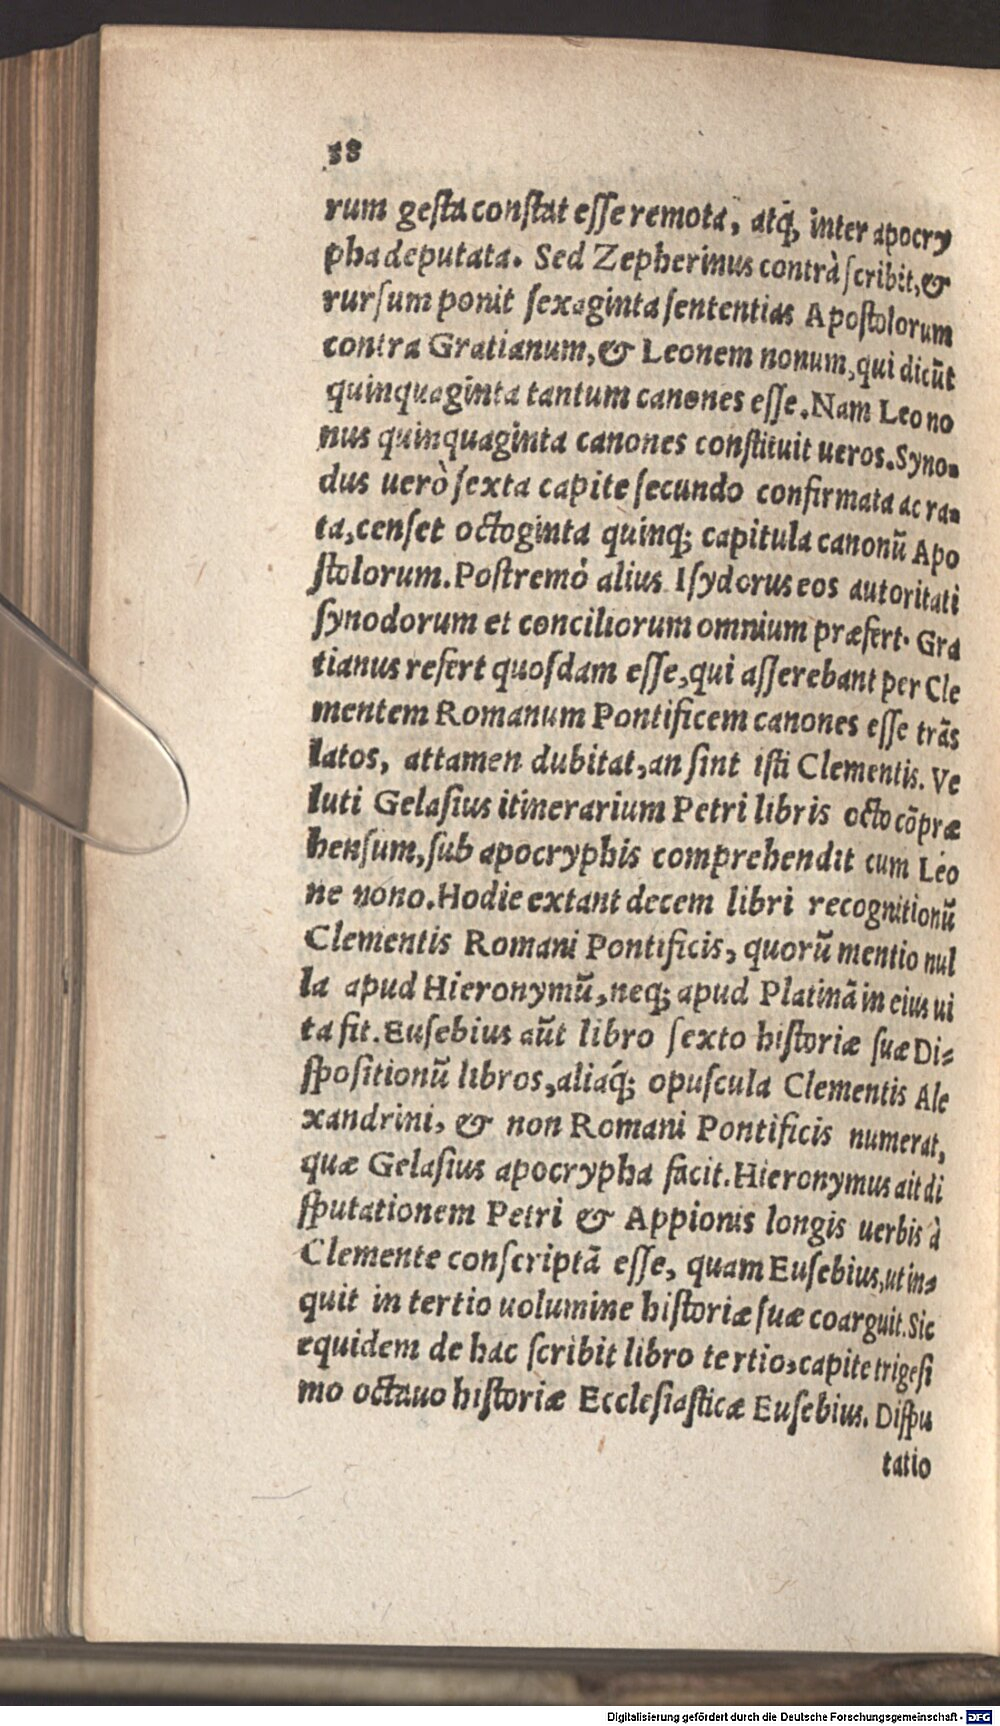 38
rum gesta constat esse remota, atq́; inter apocry
pha deputata. Sed Zepherinus contrà scribit, &
rursum ponit sexaginta sententias Apostolorum
contra Gratianum, & Leonem nonum, qui dicūt
quinquaginta tantum canones esse. Nam Leo no
nus quinquaginta canones constituit ueros. Syno-
dus uerò sexta capite secundo confirmata ac ra-
ta, censet octoginta quinq; capitula canonū Apo
stolorum. Postremò alius Isydorus eos autoritati
synodorum et conciliorum omnium præfert. Gra
tianus refert quosdam esse, qui asserebant per Cle
mentem Romanum Pontificem canones esse trās
latos, attamen dubitat, an sint isti Clementis. Ve
luti Gelasius itinerarium Petri libris octo cōpræ
hensum, sub apocryphis comprehendit cum Leo
ne nono. Hodie extant decem libri recognitionū
Clementis Romani Pontificis, quorū mentio nul
la apud Hieronymū, neq; apud Platinā in eius ui
ta fit. Eusebius aūt libro sexto historiæ suæ Di-
spositionū libros, aliaq́; opuscula Clementis Ale
xandrini, & non Romani Pontificis numerat,
quæ Gelasius apocrypha facit. Hieronymus ait di
sputationem Petri & Appionis longis uerbis à
Clemente conscriptā esse, quam Eusebius, ut in-
quit in tertio uolumine historiæ suæ coarguit. Sic
equidem de hac scribit libro tertio, capite trigesi
mo octauo historiæ Ecclesiasticæ Eusebius. Dispu
tatio
Digitalisierung gefördert durch die Deutsche Forschungsgemeinschaft - DFG